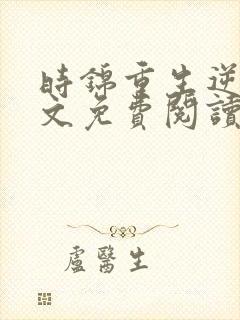 時錦重生逆
文免費閱讀
盧醫生